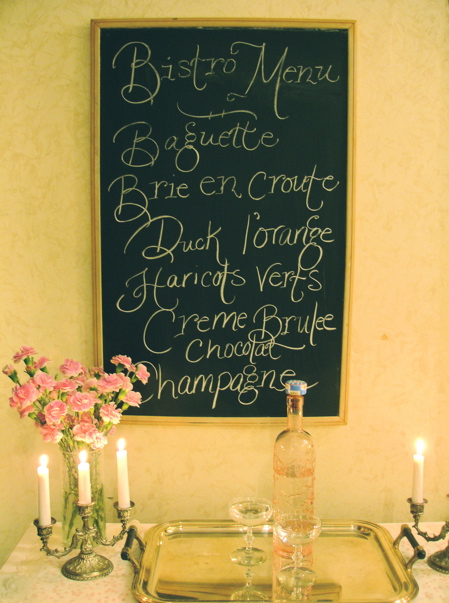 Bistro Menu
Baguette
Brie en Croute
Duck l'orange
Haricots Verts
Creme Brulee
Chocolat
Champagne